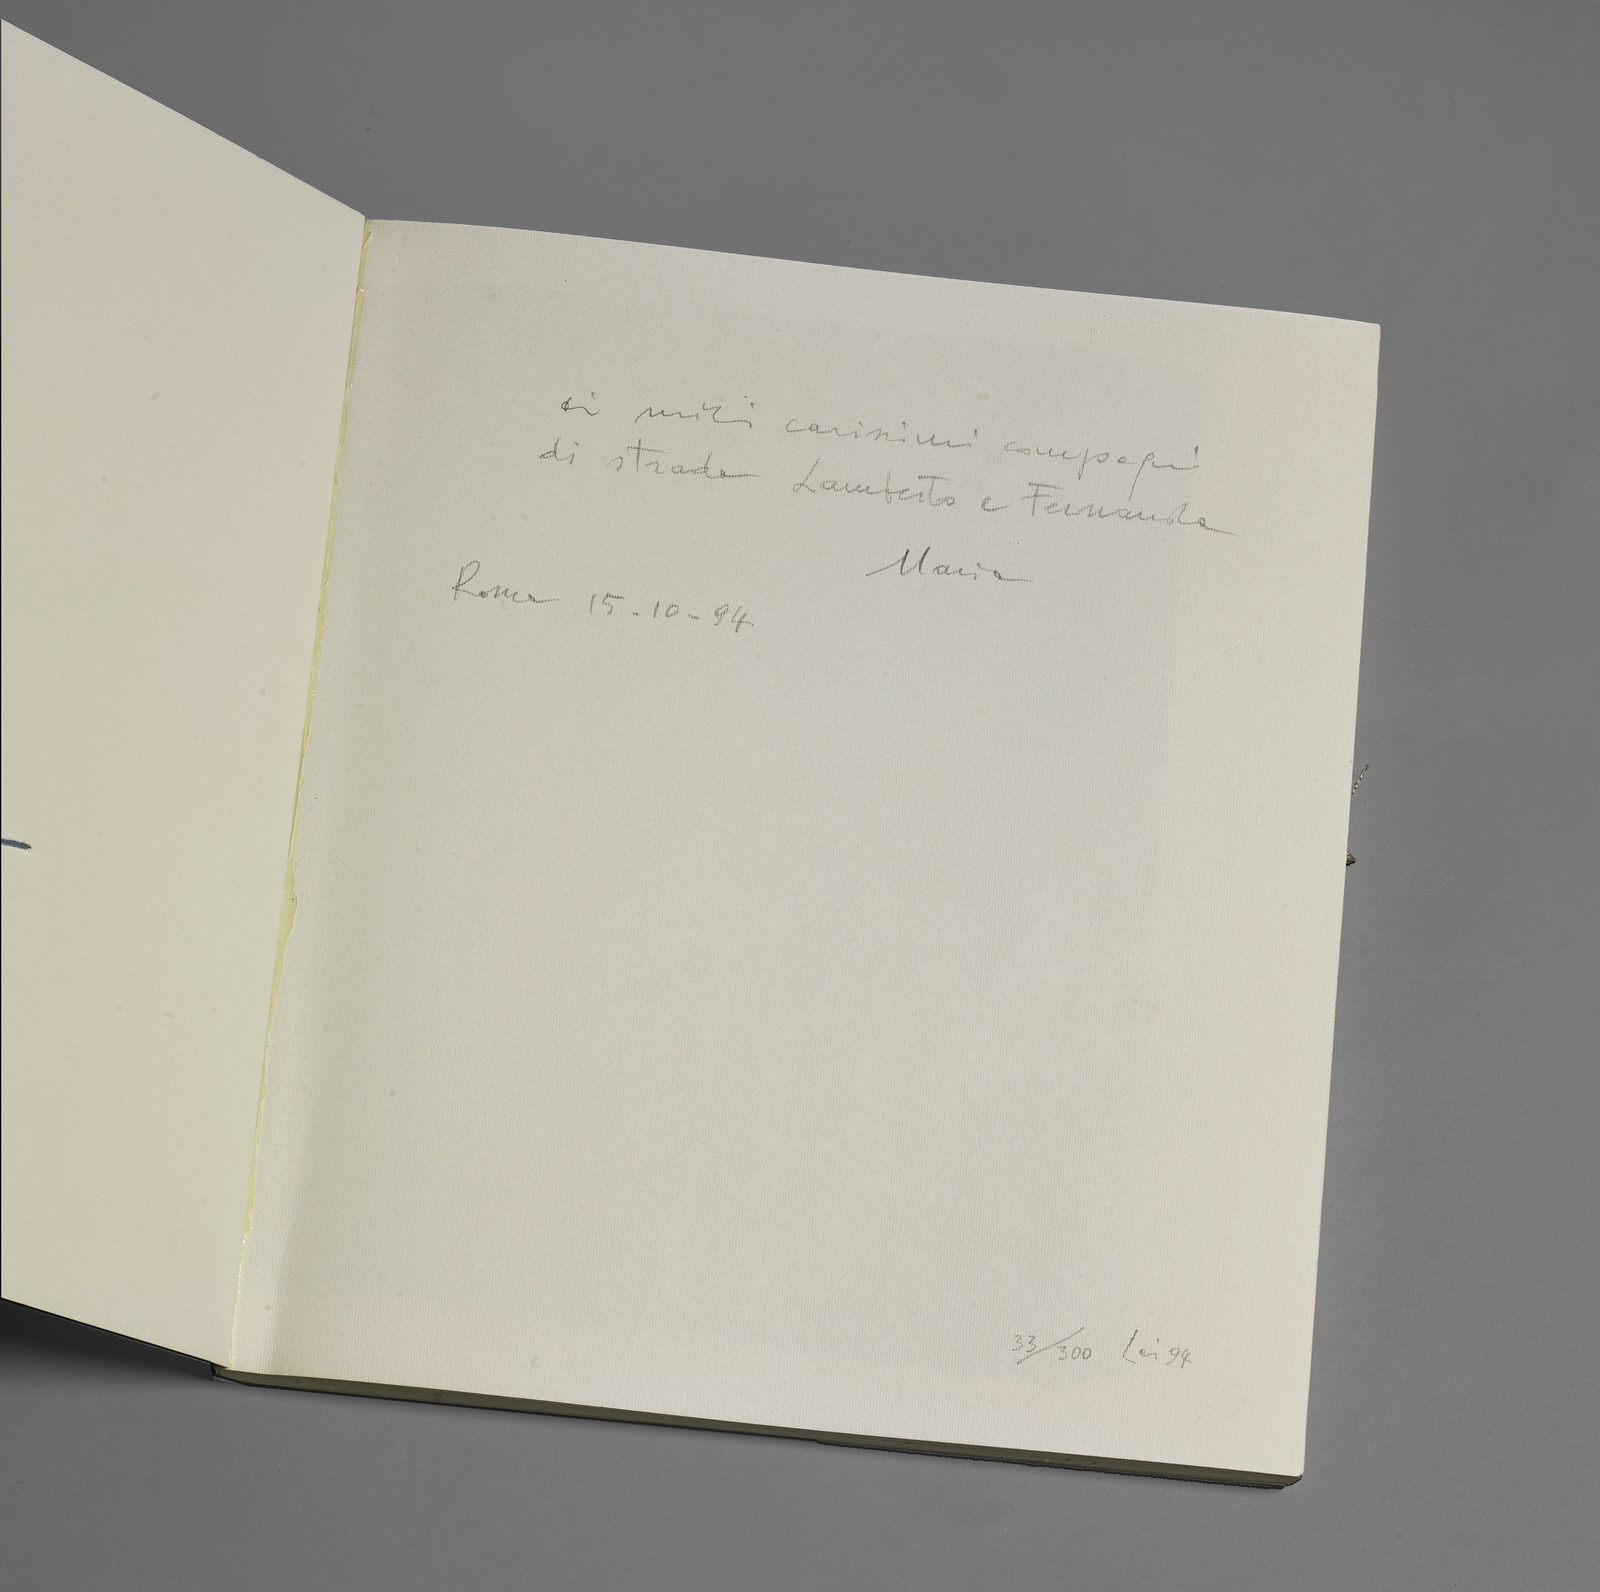 ai miei carissimi compagni
di strada Lamberto e Fernanda
Maria
Roma 15-10-94
33/300 Lai 94